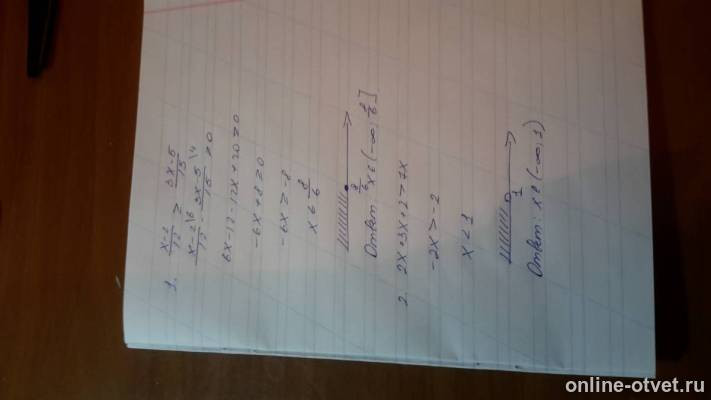 1. x-2/12 ≥ 3x-5/15
x-2\6/12 - 3x-5\4/15 ≥ 0
6x-12-12x+20 ≥ 0
-6x+8 ≥ 0
-6x ≥ -8
x ≤ 8/6
8/6
Ответ: x∈(-∞; 8/6]
2. 2x+3x+2>7x
-2x>-2
x<1
1
Ответ: x∈(-∞; 1)
online-otvet.ru